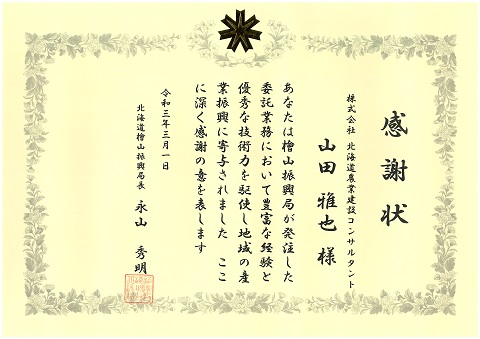 感謝状
株式会社 北海道農業建設コンサルタント
山田 雅也 様
あなたは檜山振興局が発注した
委託業務において豊富な経験と
優秀な技術力を駆使し地域の産
業振興に寄与されました ここ
に深く感謝の意を表します
令和三年三月一日
北海道檜山振興局長 永山 秀明